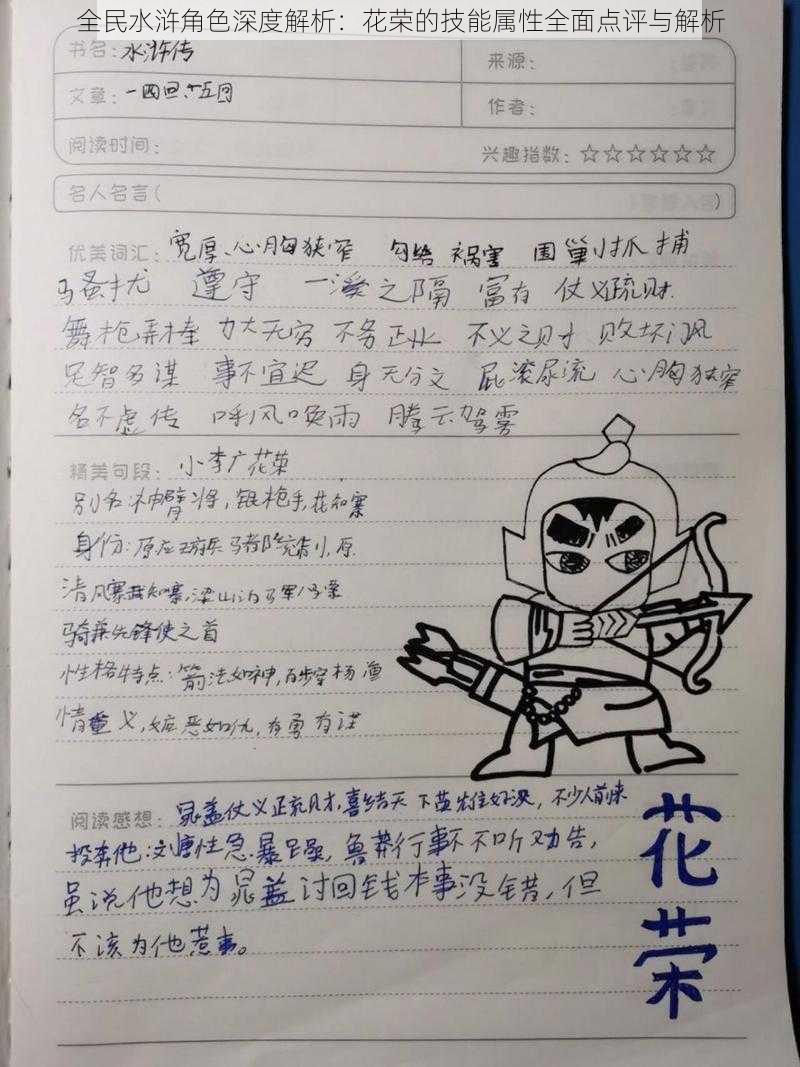 全民水浒角色深度解析：花荣的技能属性全面点评与解析
书名：水浒传
来源：
文章：一四回、十五回
作者：
阅读时间：
兴趣指数：☆☆☆☆☆☆
名人名言（ ）
优美词汇：宽厚、心胸狭窄 勾结 祸害 围剿 抓捕
骚扰 遵守 一溪之隔 富存 仗义疏财
舞枪弄棒 力大无穷 不务正业 不义之财 败坏门风
足智多谋 事不宜迟 身无分文 屁滚尿流 心胸狭窄
名不虚传 呼风唤雨 腾云驾雾
精美句段：小李广花荣
别名：神臂将，银枪手，花知寨
身份：原 原
清风寨武知寨，梁山泊马军
骑兼先锋使之首
性格特点：箭法如神，百步穿杨 重
情重义，嫉恶如仇，有勇有谋
阅读感想：晁盖仗义疏财，喜结天下英雄好汉，不少人前来
投奔他；刘唐性急暴躁，鲁莽行事不听劝告，
虽说他想为晁盖讨回钱本事没错，但
不该为他惹事。
花荣